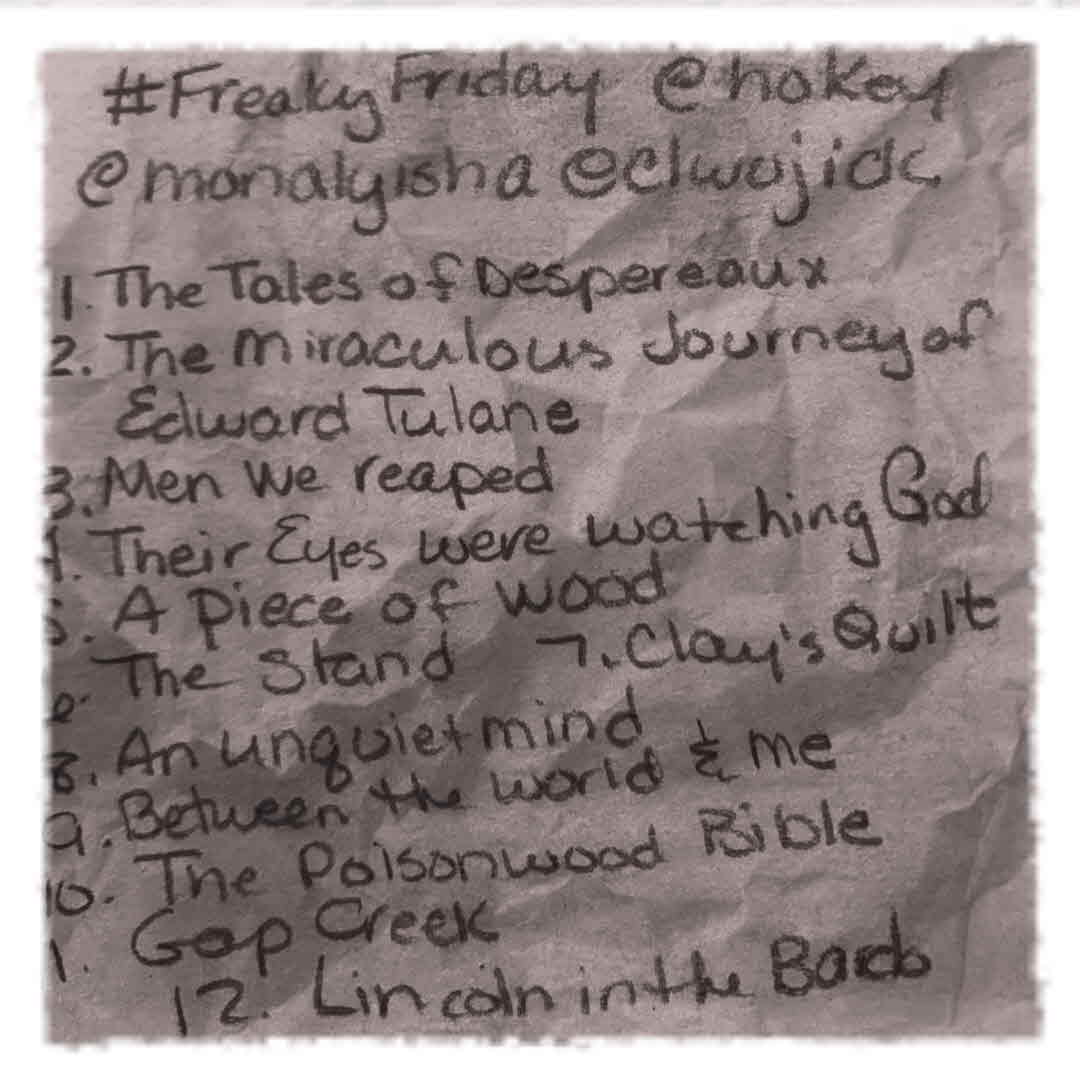 #Freaky Friday @hokey
@monalyisha @Clwojick
1. The Tales of Despereaux
2. The Miraculous Journey of
Edward Tulane
3. Men We reaped
4. Their Eyes were watching God
5. A Piece of wood
6. The Stand 7. Clay's Quilt
8. An unquiet mind
9. Between the world & me
10. The Poisonwood Bible
1. Gap Creek
12. Lincoln in the